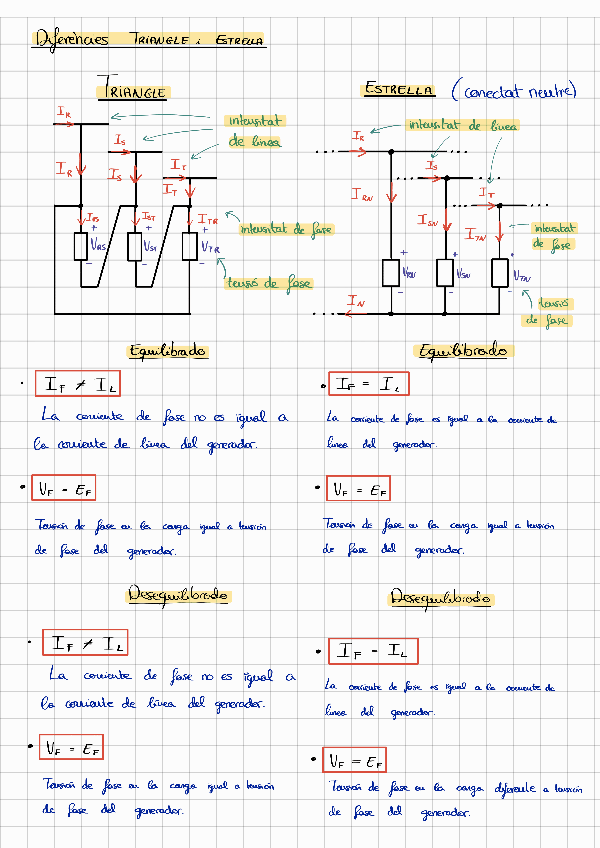 Diferències TRIANGLE i ESTRELLA
TRIANGLE
I_R
intensitat
de línea
I_S
I_T
I_R
I_S
I_T
I_RS
I_ST
I_TR
intensitat de fase
+
+
+
V_RS
V_ST
V_TR
-
-
-
tensió de fase
Equilibrado
I_F ≠ I_L
La corriente de fase no es igual a
la corriente de línea del generador.
V_F = E_F
Tensión de fase en la carga igual a tensión
de fase del generador.
Desequilibrado
I_F ≠ I_L
La corriente de fase no es igual a
la corriente de línea del generador.
V_F = E_F
Tensión de fase en la carga igual a tensión
de fase del generador.
ESTRELLA (conectat neutre)
I_R
intensitat de línea
I_S
I_T
I_RN
I_SN
I_TN
intensitat
de fase
+
+
+
V_RN
V_SN
V_TN
-
-
-
I_N
tensió
de fase
Equilibrado
I_F = I_L
La corriente de fase es igual a la corriente de
línea del generador.
V_F = E_F
Tensión de fase en la carga igual a tensión
de fase del generador.
Desequilibrado
I_F = I_L
La corriente de fase es igual a la corriente de
línea del generador.
V_F = E_F
Tensión de fase en la carga diferente a tensión
de fase del generador.